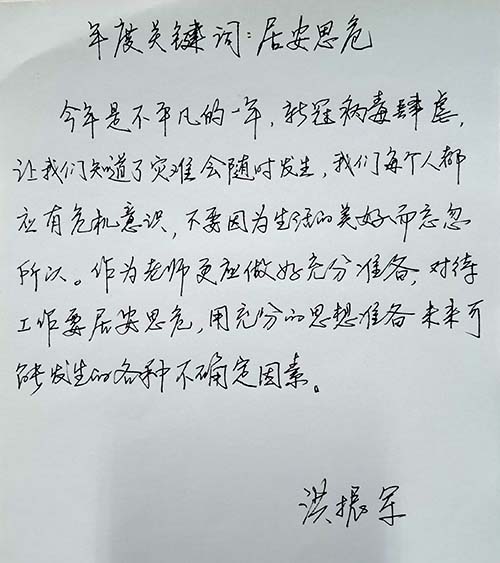 年度关键词：居安思危
今年是不平凡的一年，新冠病毒肆虐，
让我们知道了灾难会随时发生，我们每个人都
应有危机意识，不要因为生活的美好而忘忽
所以。作为老师更应做好充分准备，对待
工作要居安思危，用充分的思想准备未来可
能发生的各种不确定因素。
洪振军